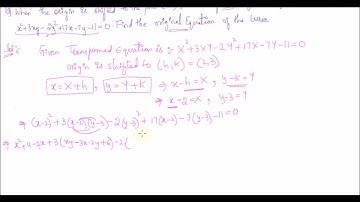 Q) When the origin is shifted to the
x²+3xy-2y²+17x-7y-11=0. Find the original Equation of the
Given Transformed Equation is :- X²+3XY-2Y²+17X-7Y-11=0
origin is shifted to (h,k) = (2,3)
x = X+h , y = Y+k ⇒ x-h = X , y-k = Y
⇒ x-2 = X , y-3 = Y
⇒ (x-2)²+3(x-2)(y-3)-2(y-3)²+17(x-2)-7(y-3)-11=0
⇒ x²+4-2x+3(xy-3x-2y+6)-2(